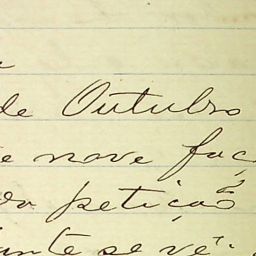 de Outubro
e nove faç
do petição
iante se vê